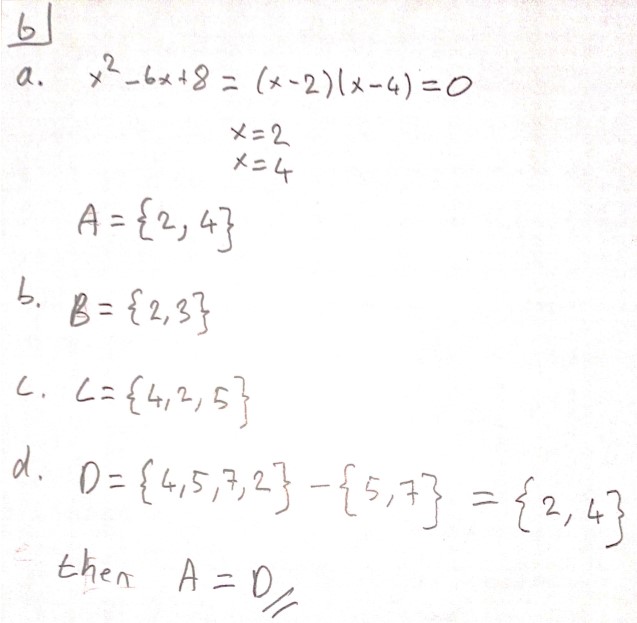 6
a. x²-6x+8 = (x-2)(x-4)=0
x=2
x=4
A={2,4}
b. B={2,3}
c. C={4,2,5}
d. D={4,5,7,2}-{5,7} = {2,4}
then A=D//